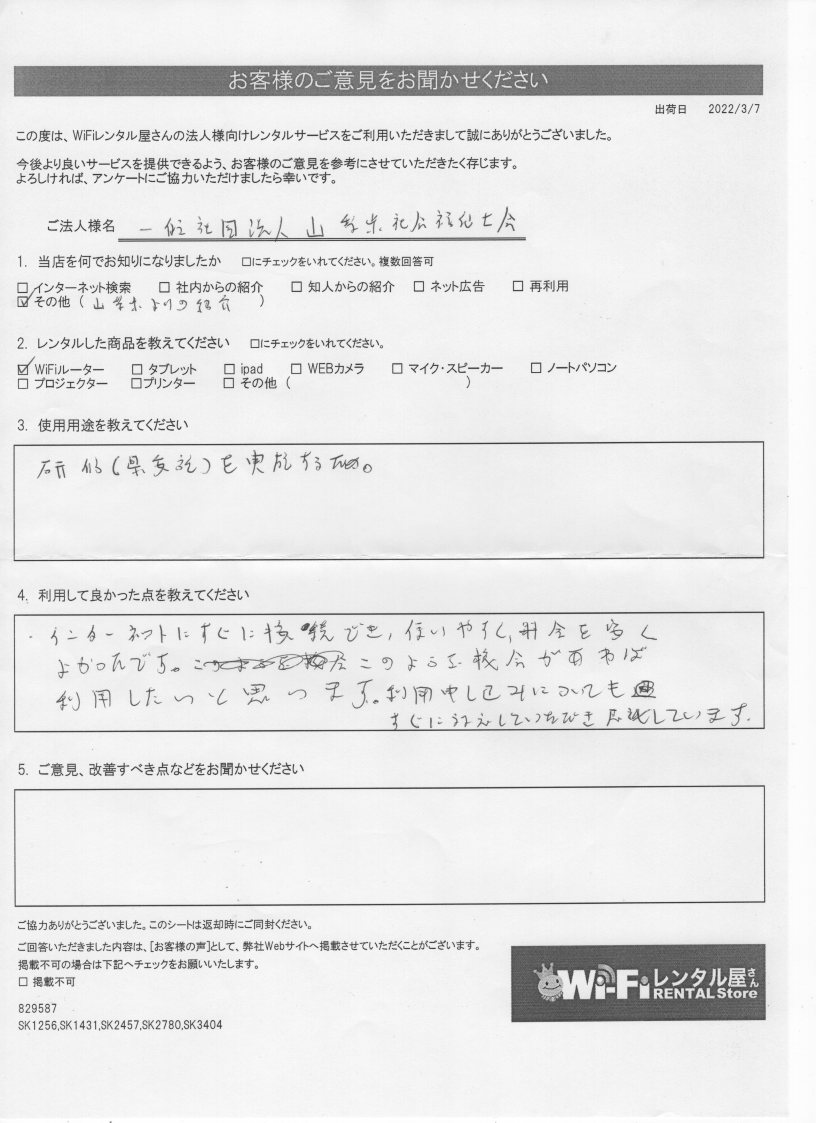 お客様のご意見をお聞かせください
出荷日 2022/3/7
この度は、WiFiレンタル屋さんの法人様向けレンタルサービスをご利用いただきまして誠にありがとうございました。
今後より良いサービスを提供できるよう、お客様のご意見を参考にさせていただきたく存じます。
よろしければ、アンケートにご協力いただけましたら幸いです。
ご法人様名 一般社団法人山梨県社会福祉士会
1. 当店を何でお知りになりましたか □にチェックをいれてください。複数回答可
□ インターネット検索 □ 社内からの紹介 □ 知人からの紹介 □ ネット広告 □ 再利用
☑ その他 ( 山梨県よりの紹介 )
2. レンタルした商品を教えてください □にチェックをいれてください。
☑ WiFiルーター □ タブレット □ ipad □ WEBカメラ □ マイク・スピーカー □ ノートパソコン
□ プロジェクター □プリンター □ その他 ( )
3. 使用用途を教えてください
研修(県委託)を実施するため。
4. 利用して良かった点を教えてください
・インターネットにすぐに接続でき,使いやすく,料金も安く
よかったです。このような機会があれば
利用したいと思います。利用申し込みについても
すぐに対応していただき感謝しています。
5. ご意見、改善すべき点などをお聞かせください
ご協力ありがとうございました。このシートは返却時にご同封ください。
ご回答いただきました内容は、[お客様の声]として、弊社Webサイトへ掲載させていただくことがございます。
掲載不可の場合は下記へチェックをお願いいたします。
□ 掲載不可
Wi-Fiレンタル屋さん
RENTAL Store
829587
SK1256,SK1431,SK2457,SK2780,SK3404